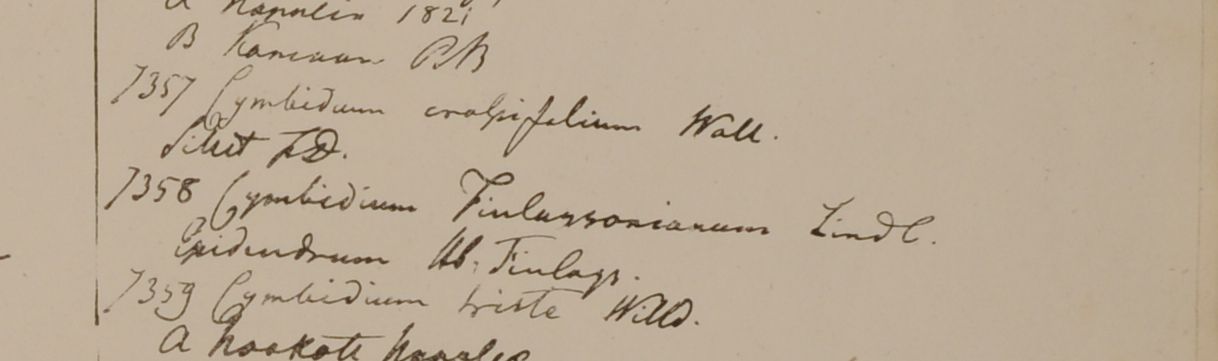 A Napalia 1821
B Kamaon RB
7357 Cymbidium crassifolium Wall.
Silhet FD.
7358 Cymbidium Finlaysonianum Lindl.
Epidendrum Hb. Finlays.
7359 Cymbidium triste Willd.
A